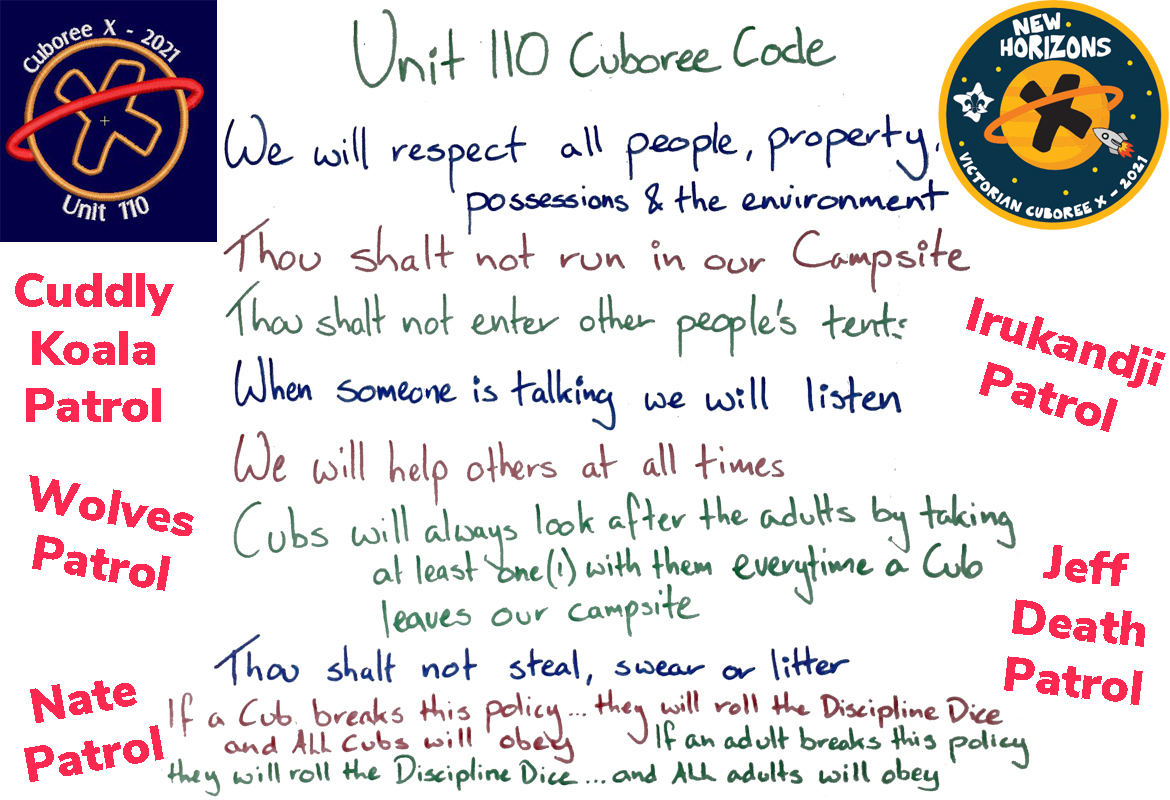 Cuboree X - 2021
Unit 110
Unit 110 Cuboree Code
NEW
HORIZONS
VICTORIAN CUBOREE X - 2021
We will respect all people, property,
possessions & the environment
Thou shalt not run in our Campsite
Thou shalt not enter other people's tents
When someone is talking we will listen
We will help others at all times
Cubs will always look after the adults by taking
at least one(1) with them everytime a Cub
leaves our campsite
Thou shalt not steal, swear or litter
If a Cub breaks this policy... they will roll the Discipline Dice
and ALL Cubs will obey If an adult breaks this policy
they will roll the Discipline Dice ... and ALL adults will obey
Cuddly
Koala
Patrol
Wolves
Patrol
Nate
Patrol
Irukandji
Patrol
Jeff
Death
Patrol